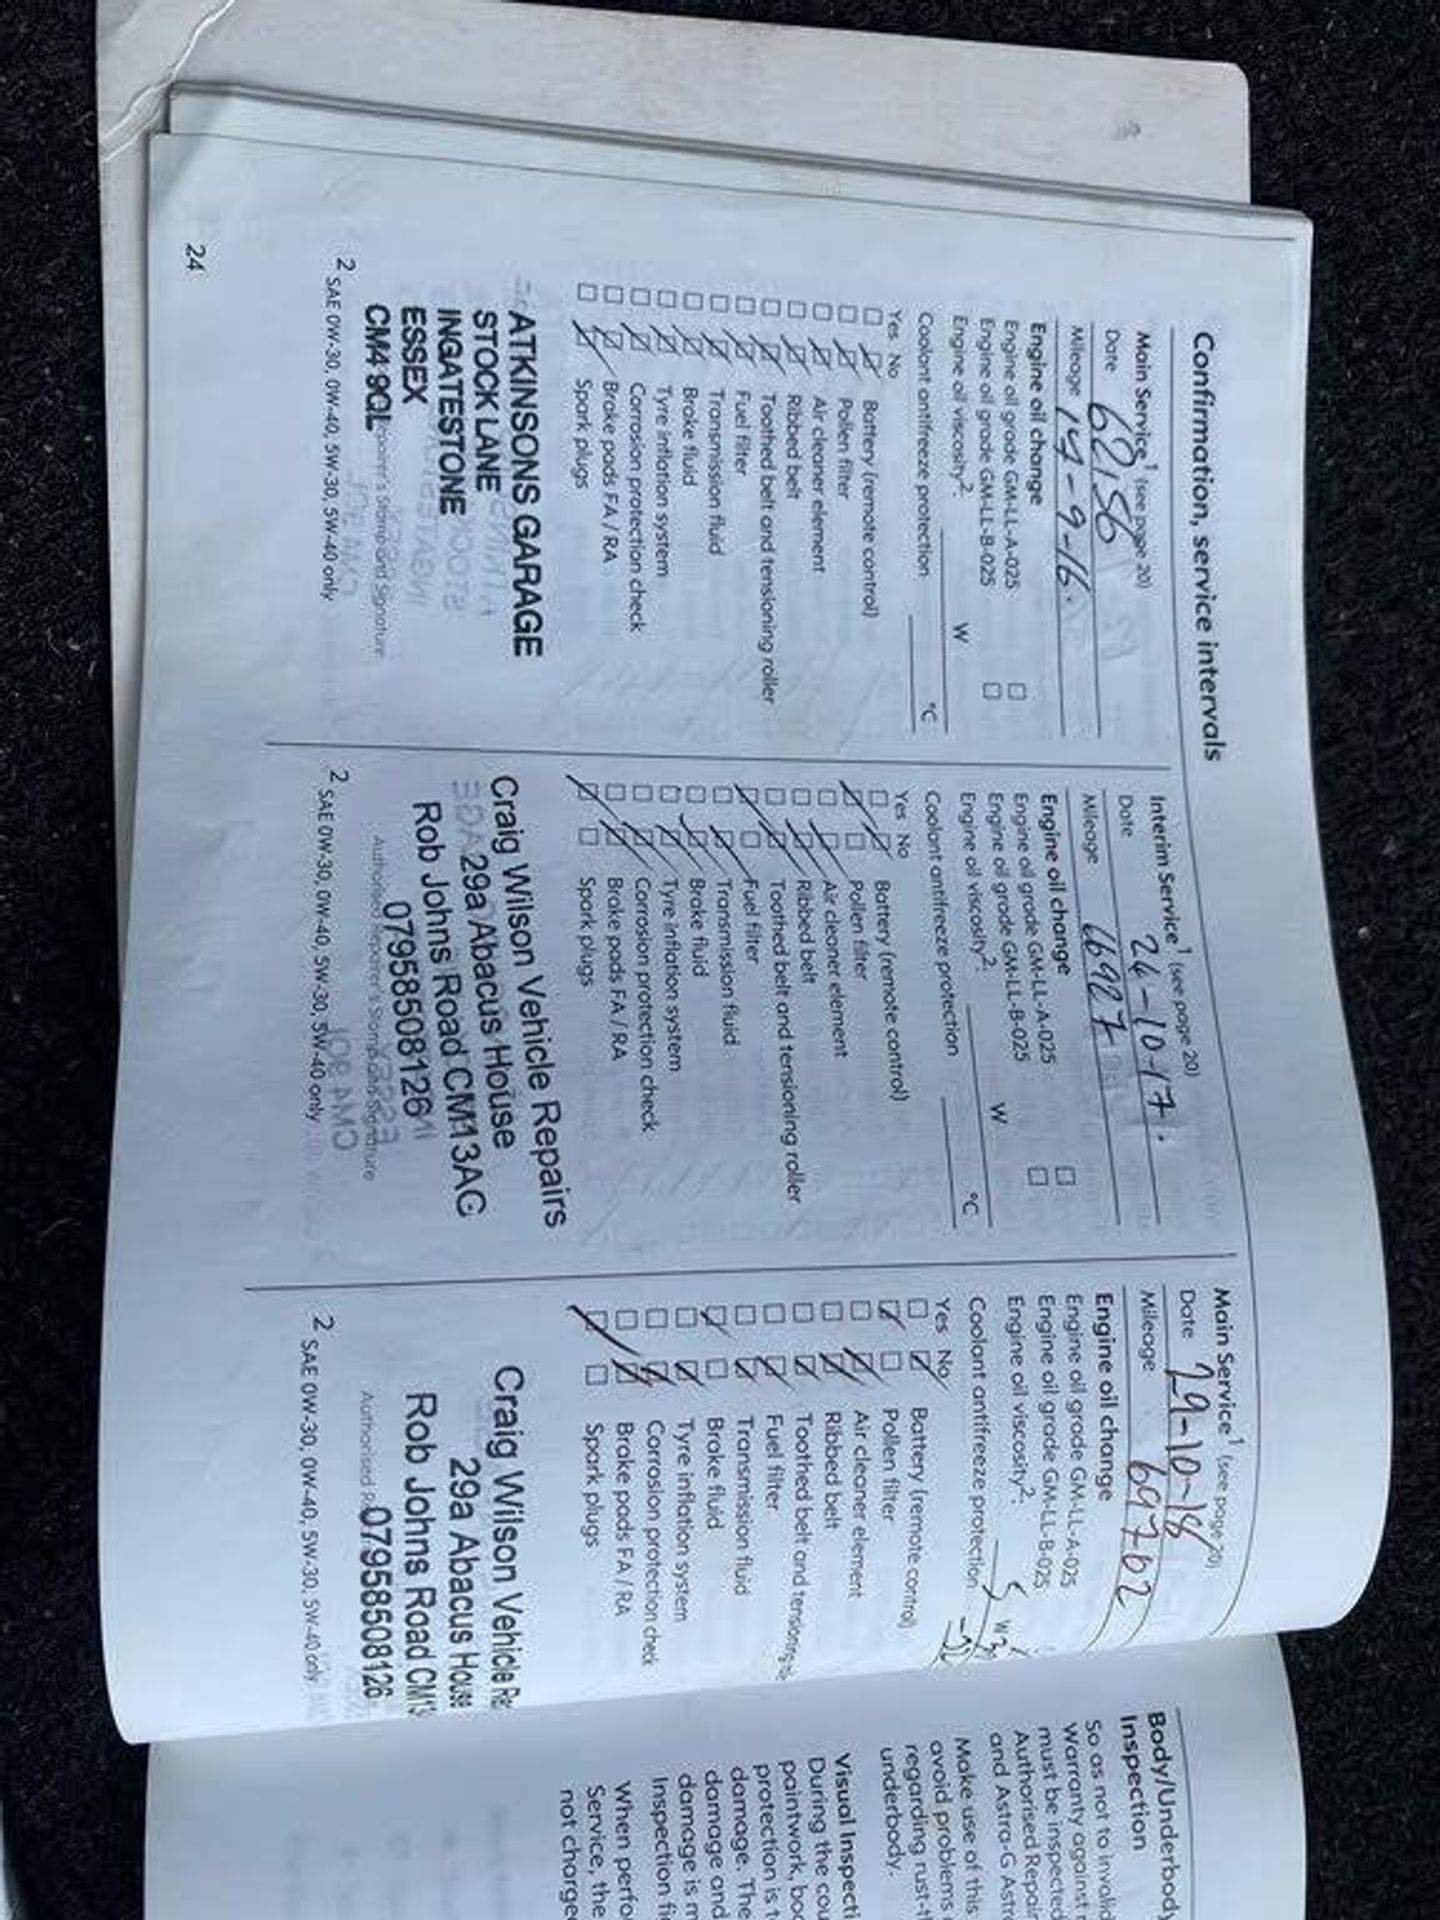 Confirmation, service intervals
Main Service1 (see page 20)
Date 62156
Mileage 17-9-16.
Engine oil change
Engine oil grade GM-LL-A-025
Engine oil grade GM-LL-B-025
Engine oil viscosity2: W
Coolant antifreeze protection °C
Yes No
Battery (remote control)
Pollen filter
Air cleaner element
Ribbed belt
Toothed belt and tensioning roller
Fuel filter
Transmission fluid
Brake fluid
Tyre inflation system
Corrosion protection check
Brake pads FA / RA
Spark plugs
ATKINSONS GARAGE
STOCK LANE
INGATESTONE
ESSEX
CM4 9QL
Repairer's Stamp and Signature
2 SAE 0W-30, 0W-40, 5W-30, 5W-40 only
24
Interim Service1 (see page 20)
Date 24-10-17.
Mileage 66927
Engine oil change
Engine oil grade GM-LL-A-025
Engine oil grade GM-LL-B-025
Engine oil viscosity2: W
Coolant antifreeze protection °C
Yes No
Battery (remote control)
Pollen filter
Air cleaner element
Ribbed belt
Toothed belt and tensioning roller
Fuel filter
Transmission fluid
Brake fluid
Tyre inflation system
Corrosion protection check
Brake pads FA / RA
Spark plugs
Craig Wilson Vehicle Repairs
29a Abacus House
Rob Johns Road CM13AG
07958508126
Authorised Repairer's Stamp and Signature
2 SAE 0W-30, 0W-40, 5W-30, 5W-40 only
Main Service1 (see page 20)
Date 29-10-18
Mileage 69702
Engine oil change
Engine oil grade GM-LL-A-025
Engine oil grade GM-LL-B-025
Engine oil viscosity2: 5 W
Coolant antifreeze protection
Yes No
Battery (remote control)
Pollen filter
Air cleaner element
Ribbed belt
Toothed belt and tensioning
Fuel filter
Transmission fluid
Brake fluid
Tyre inflation system
Corrosion protection check
Brake pads FA / RA
Spark plugs
Craig Wilson Vehicle Re
29a Abacus House
Rob Johns Road CM13
07958508126
Authorised
2 SAE 0W-30, 0W-40, 5W-30, 5W-40 only
Body/Underbody
Inspection
So as not to invalid
Warranty against
must be inspected
Authorised Repair
and Astra-G Astr
Make use of this
avoid problems
regarding rust-t
underbody.
Visual Inspecti
During the cou
paintwork, bod
protection is t
damage. The
damage and
damage is m
Inspection fi
When perfo
Service, the
not charge